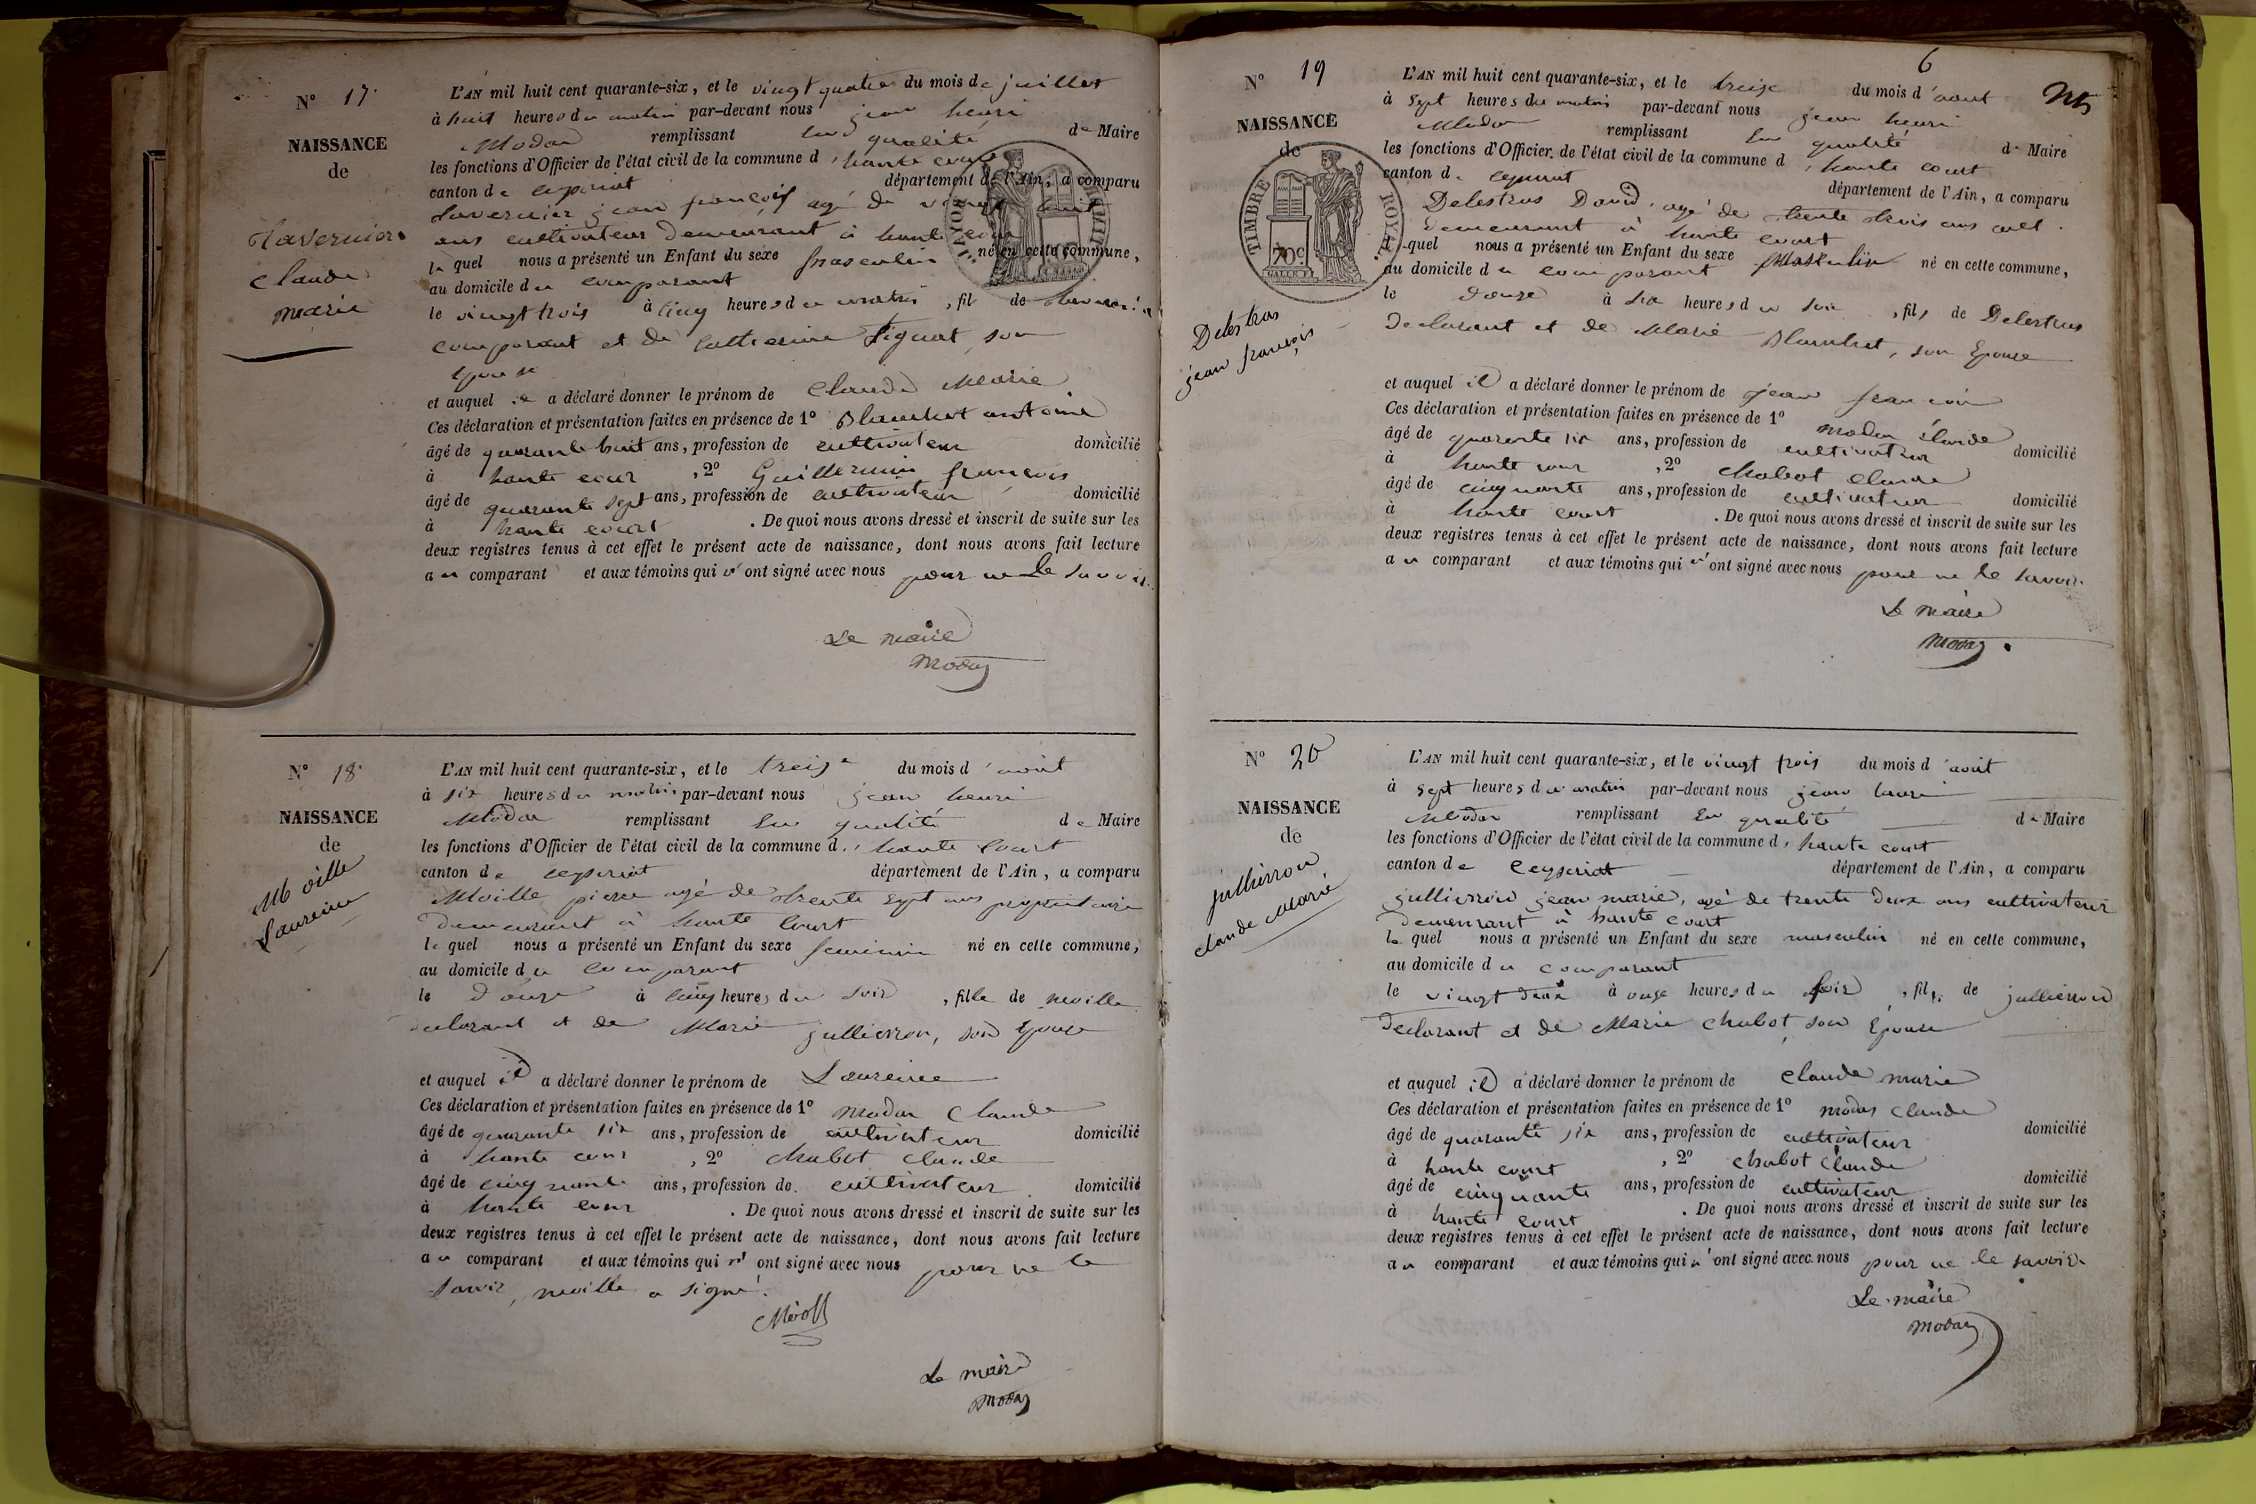 N° 17.
NAISSANCE
de
Tavernier
Claude
marie
L'AN mil huit cent quarante-six, et le vingt quatre du mois de juillet
à huit heures du matin par-devant nous jean henri
Modas remplissant en qualité de Maire
les fonctions d'Officier de l'état civil de la commune d'haute court
canton de ceyseriat département de l'Ain, a comparu
Tavernier jean françois agé de vingt huit
ans cultivateur demeurant à haute cour
lequel nous a présenté un Enfant du sexe masculin né en cette commune,
au domicile du comparant
le vingt trois à cinq heures du matin, fil de
comparant et de Catherine Tignat, son
Epouse
et auquel il a déclaré donner le prénom de Claude Marie
Ces déclaration et présentation faites en présence de 1° Blanchet antoine
âgé de quarante huit ans, profession de cultivateur domicilié
à haute cour, 2° Guillermin françois
âgé de quarante sept ans, profession de cultivateur domicilié
à haute court. De quoi nous avons dressé et inscrit de suite sur les
deux registres tenus à cet effet le présent acte de naissance, dont nous avons fait lecture
au comparant et aux témoins qui n'ont signé avec nous pour ne le savoir.
Le maire
Modas
N° 18.
NAISSANCE
de
Moille
Laureine
L'AN mil huit cent quarante-six, et le treize du mois d'août
à six heures du matin par-devant nous jean henri
Modas remplissant en qualité de Maire
les fonctions d'Officier de l'état civil de la commune d'haute Court
canton de ceyseriat département de l'Ain, a comparu
Moille pierre agé de trente sept ans propriétaire
demeurant à haute Court
lequel nous a présenté un Enfant du sexe feminin né en cette commune,
au domicile du comparant
le douze à cinq heures du soir, fille de moille
declarant et de Marie jullierron, son Epouse
et auquel il a déclaré donner le prénom de Laureine
Ces déclaration et présentation faites en présence de 1° Modas Claude
âgé de quarante six ans, profession de cultivateur domicilié
à haute cour, 2° chabot claude
âgé de cinquante ans, profession de cultivateur domicilié
à haute cour. De quoi nous avons dressé et inscrit de suite sur les
deux registres tenus à cet effet le présent acte de naissance, dont nous avons fait lecture
au comparant et aux témoins qui n'ont signé avec nous pour ne le
savoir, moille a signé.
Le maire
Modas
6
N° 19
NAISSANCE
de
TIMBRE ROYAL.
70c
Delestras
jean françois
L'AN mil huit cent quarante-six, et le treize du mois d'aout
à sept heures du matin par-devant nous jean henri
Modas remplissant en qualité de Maire
les fonctions d'Officier de l'état civil de la commune d'haute court
canton de ceyseriat département de l'Ain, a comparu
Delestras David, agé de trente trois ans cult.
demeurant à haute court
lequel nous a présenté un Enfant du sexe Masculin né en cette commune,
au domicile du comparant
le douze à six heures du soir, fils de Delestras
declarant et de Marie Blanchet, son Epouse
et auquel il a déclaré donner le prénom de jean françois
Ces déclaration et présentation faites en présence de 1° modas claude
âgé de quarente six ans, profession de cultivateur domicilié
à haute cour, 2° chabot claude
âgé de cinquante ans, profession de cultivateur domicilié
à haute court. De quoi nous avons dressé et inscrit de suite sur les
deux registres tenus à cet effet le présent acte de naissance, dont nous avons fait lecture
au comparant et aux témoins qui n'ont signé avec nous pour ne le savoir.
Le maire
modas
N° 20
NAISSANCE
de
jullierron
claude marie
L'AN mil huit cent quarante-six, et le vingt trois du mois d'août
à sept heures du matin par-devant nous jean henri
Modas remplissant en qualité de Maire
les fonctions d'Officier de l'état civil de la commune d'haute court
canton de Ceyseriat département de l'Ain, a comparu
jullierron jean marie, agé de trente deux ans cultivateur
demeurant à haute court
lequel nous a présenté un Enfant du sexe masculin né en cette commune,
au domicile du comparant
le vingt deux à onze heures du soir, fils de jullierron
declarant et de Marie Chabot, son Épouse
et auquel il a déclaré donner le prénom de Claude marie
Ces déclaration et présentation faites en présence de 1° modas Claude
âgé de quarante six ans, profession de cultivateur domicilié
à haute court, 2° chabot Claude
âgé de cinquante ans, profession de cultivateur domicilié
à haute court. De quoi nous avons dressé et inscrit de suite sur les
deux registres tenus à cet effet le présent acte de naissance, dont nous avons fait lecture
au comparant et aux témoins qui n'ont signé avec nous pour ne le savoir.
Le maire
modas